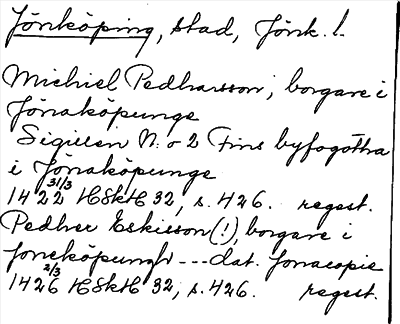 Jönköping, stad, Jönk. l.
Michiel Pedharsson, borgare i
Jönaköpunge
Sigillen N. o 2 Fins byfogotha
i Jönaköpunge
1422 31/3 HSkH 32, s. 426. regest.
Pedher Eskisson (!), borgare i
Joneköpungh --- dat. Jonacopie
1426 2/3 HSkH 32, s. 426. regest.